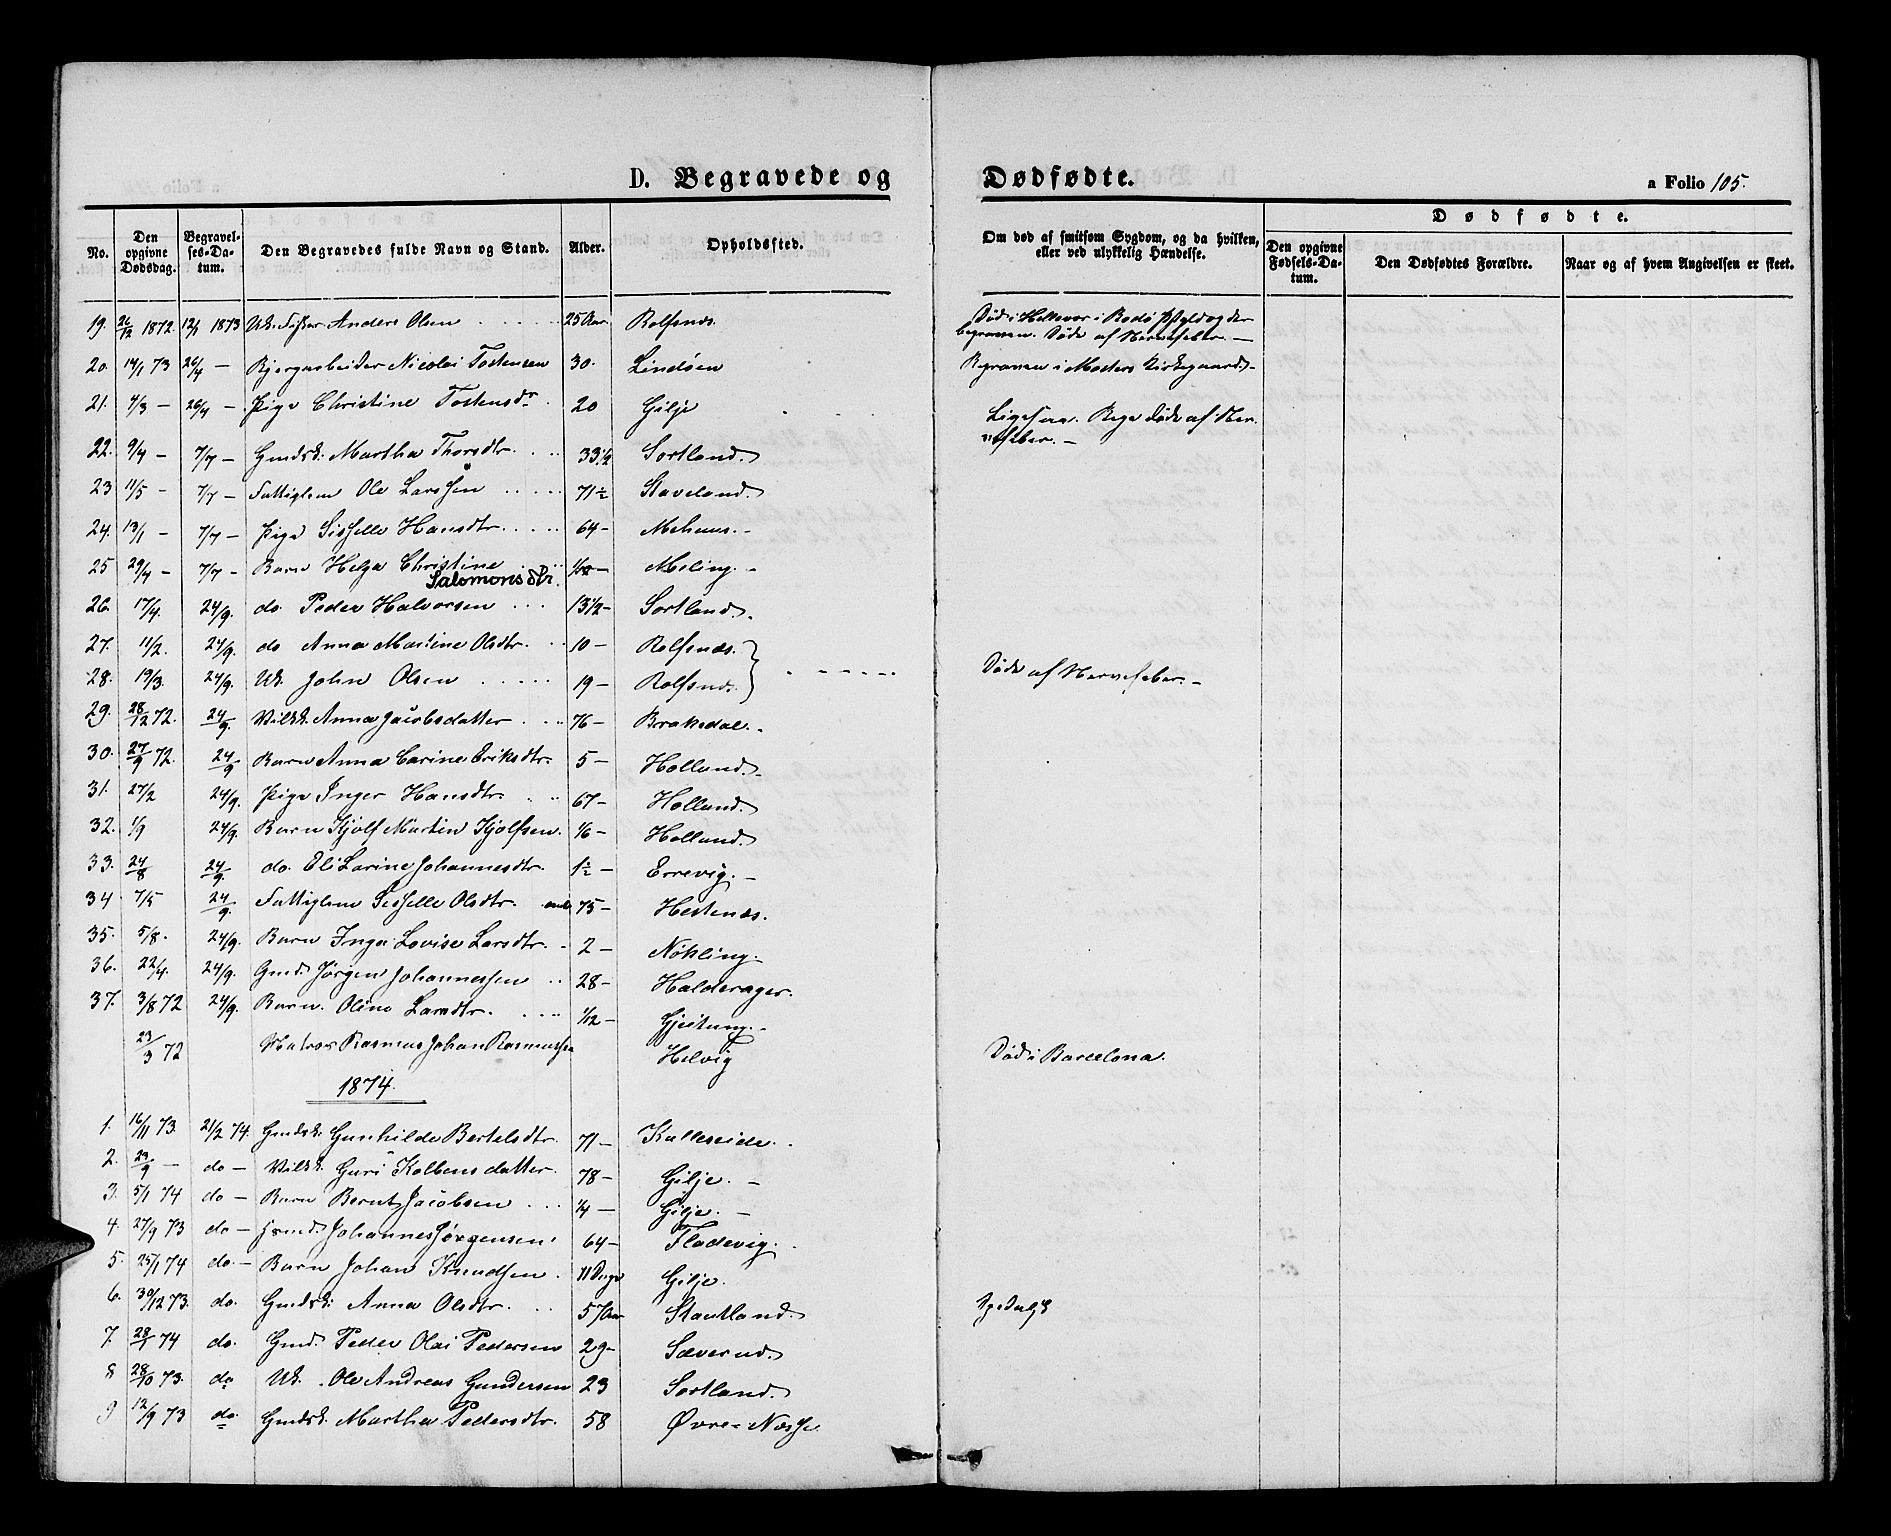 D. Begravede og Dødfødte.
a Folio 105.
No. Den opgivne Dødsdag. Begravelses-Datum. Den Begravedes fulde Navn og Stand. Alder. Opholdssted. Om død af smitsom Sygdom, og da hvilken, eller ved ulykkelig Hændelse. Dødfødte. Den opgivne Fødsels-Datum. Den Dødfødtes Forældre. Naar og af hvem Angivelsen er skeet.
19. 26/12 1872. 12/1 1873 Uk. Anders Olsen 25 Aar Rolfsnæs. Død i Bodø og der begraven. Døde af Nervefeber. —
20. 14/1 73 26/4 — Bjergarbeider Nicolai Tostensen 30. Lindøen Begraven i Mosters Kirkegaard. —
21. 4/3 — 26/4 — Pige Christine Tostensdr 20 Gilje Ligesaa. Døde af Nervefeber. —
22. 9/4 — 7/7 — Gmdsk. Martha Thorsdtr. 33 1/2 Sortland.
23 11/5 — 7/7 — Fattiglem Ole Larssen 71 1/2 Staveland.
24. 13/1 — 7/7 — Pige Sisselle Hansdtr. 64 — Mehuus. —
25 29/4 — 7/7 — Barn Helga Christine Salomonsdtr. Meling. —
26. 17/4. 24/9. do. Peder Halvorsen 13 1/2 — Sortland.
27. 11/2. 24/9. do Anna Martine Olsdtr. 10 — Rolfsnæs.
28. 19/3. 24/9. Uk. John Olsen 19 — Rolfsnæs. Døde af Nervefeber. —
29. 28/12 72. 24/9. Vilkk. Anna Jacobsdatter 76 — Brakedal.
30. 27/9 72. 24/9 Barn Anna Carine Eriksdtr. 5 — Holland.
31. 27/2 24/9. Pige Inger Hansdtr. 67 — Holland.
32. 1/9 24/9. Barn Kjølf Martin Kjølfsen. 1/6 — Holland.
33. 24/8 24/9. do. Eli Larine Johannesdtr. 1 1/2 — Errevig. —
34 7/5 24/9. Fattiglem Sisselle Olsdtr. 75 — Hestenæs.
35. 5/8. 24/9. Barn Inga Lovise Larsdtr. 2 — Nøkling.
36. 22/4. 24/9. Gmd. Jørgen Johannessen 28 — Halderager.
37. 3/8 72 24/9. Barn. Oline Larsdtr. 1/12 — Gjeitung.
23/3 72 Matros Rasmus Johan Rasmussen Helvig Død i Barcelona.
1874.
1. 16/11 73. 21/2 74. Gmdsk. Gunhilde Bertelsdtr. 71 — Kalleseide.
2. 23/9 — do — Vilkk. Guri Kolbensdatter. 78 — Gilje. —
3. 5/1 74 do — Barn Bernt Jacobsen 1/4 — Gilje. —
4. 27/9 73 do — Johannes Jørgensen. 64 — Fladevig.
5. 25/1 74 do. — Barn Johan Knudsen. 11 Dage Gilje.
6. 30/12 73. do. Gmdsk. Anna Olsdtr. 57 Aar Stautland. Spedalsk
7. 28/1 74 do. Gmd. Peder Olai Pedersen 29 — Sæverud.
8 28/10 73. do Uk. Ole Andreas Gundersen 23 Sortland.
9 12/9 73 do. Gmdsk. Martha Pedersdtr. 58 Øvre-Næsse